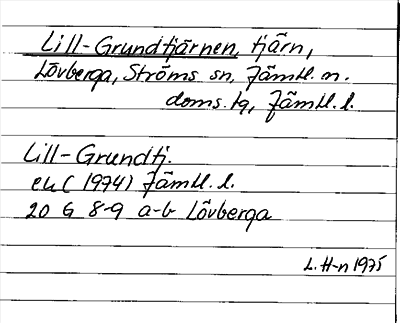 Lill-Grundtjärnen, tjärn,
Lövberga, Ströms sn, Jämtl. n.
doms. tg, Jämtl. l.
Lill-Grundtj.
ek (1974) Jämtl. l.
20 G 8-9 a-b Lövberga
L. H-n 1975